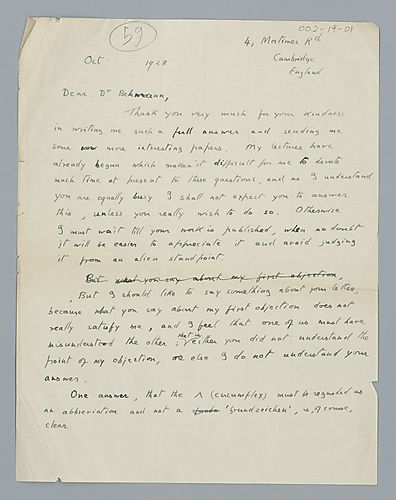 59
002-19-01
4, Mortimer Rd
Cambridge
England
Oct 1928
Dear Dr Behmann,
Thank you very much for your kindness
in writing me such a full answer and sending me
some more interesting papers. My lectures have
already begun which makes it difficult for me to devote
much time at present to these questions, and as I understand
you are equally busy I shall not expect you to answer
this, unless you really wish to do so. Otherwise
I must wait till your work is published, when no doubt
it will be easier to appreciate it and avoid judging
it from an alien standpoint.
But what you say about my first objection,
But I should like to say something about your letter,
because what you say about my first objection does not
really satisfy me, and I feel that one of us must have
misunderstood the other; that is
either you did not understand the
point of my objection, or else I do not understand your
answer.
One answer, that the ∧ (circumflex) must be regarded as
an abbreviation and not a 'Grundzeichen', is, of course,
clear